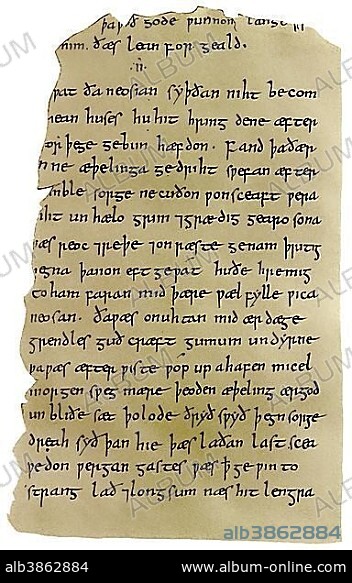 þa ƿið gode ƿunnon lange
him. ðæs lean for geald.
.ii.
ƿat ða neosian syþðan niht be com
hean huses hu hit hring dene æfter
beor þege gebun hæfdon. Fand þa ðær
inne æþelinga gedriht sƿefan æfter
symble sorge ne cuðon ƿonsceaft ƿera
ƿiht un hælo grim ⁊ grædig gearo sona
ƿæs reoc ⁊ reþe ⁊ on ræste genam þritig
þegna þanon eft geƿat huðe hremig
to ham faran mid þære ƿæl fylle ƿica
neosan. ða ƿæs on uhtan mid ær dæge
grendles guð cræft gumum undyrne
þa ƿæs æfter ƿiste ƿop up ahafen micel
morgen sƿeg mære þeoden æþeling ærgod
un bliðe sæt þolode ðryð sƿyð þegn sorge
dreah syðþan hie þæs laðan last scea
ƿedon ƿergan gastes ƿæs ꝥ ge ƿin to
strang lað ⁊ longsum næs hit lengra
alb3862884
alb3862884 www.album-online.com
ALBUM